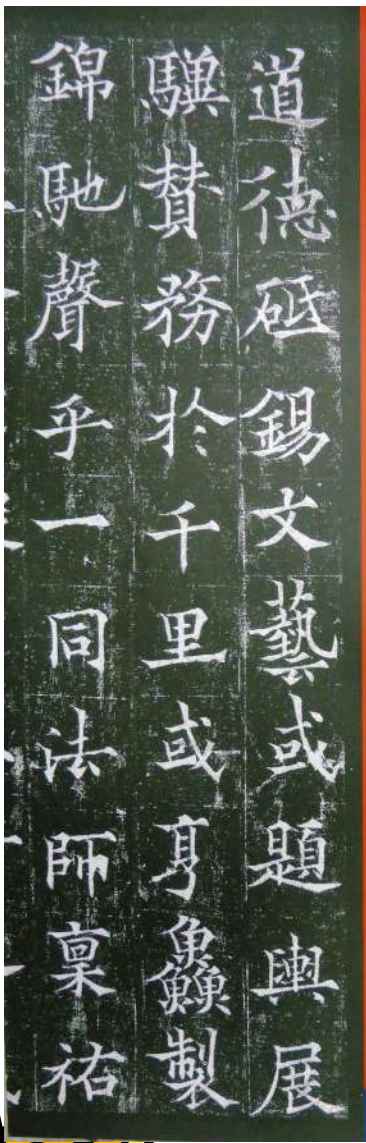 道德砥錫文藝或題輿展
驥贊務於千里或亨鱻製
錦馳聲乎一同法師稟祐